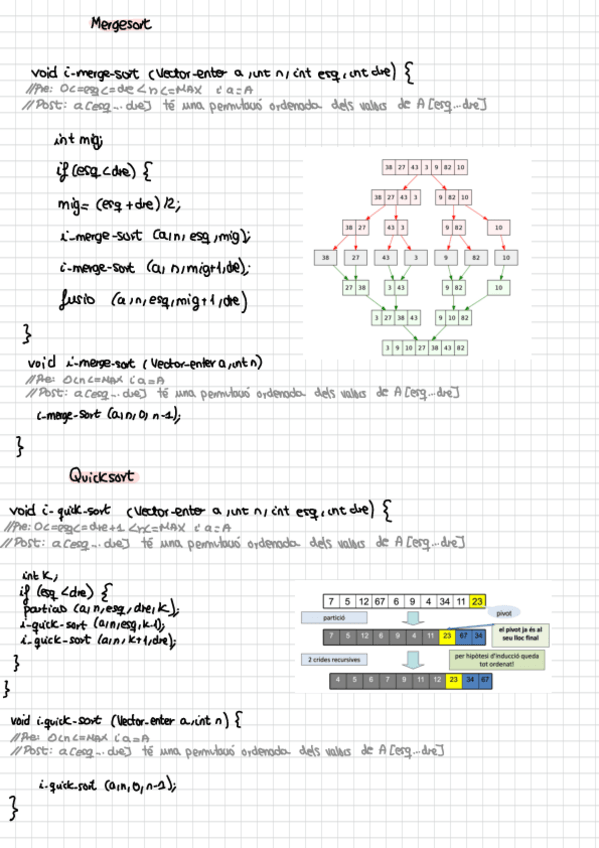 Mergesort
void i-merge-sort (Vector-enter a, int n, int esq, int dre) {
//Pre: 0<=esq<=dre<n<=MAX i a=A
//Post: a[esq...dre] té una permutació ordenada dels valors de A[esq...dre]
int mig;
if (esq<dre) {
mig= (esq+dre)/2;
i-merge-sort (a,n,esq,mig);
i-merge-sort (a,n,mig+1,de);
fusio (a,n,esq,mig+1,dre)
}
38 27 43 3 9 82 10
38 27 43 3 9 82 10
38 27 43 3 9 82 10
38 27 43 3 9 82 10
27 38 3 43 9 82 10
3 27 38 43 9 10 82
3 9 10 27 38 43 82
void i-merge-sort (Vector-enter a, int n)
//Pre: 0<n<=MAX i a=A
//Post: a[esq...dre] té una permutació ordenada dels valors de A[esq...dre]
i-merge-sort (a,n,0,n-1);
}
Quicksort
void i-quick-sort (Vector-enter a, int n, int esq, int dre) {
//Pre: 0<=esq<=dre+1<n<=MAX i a=A
//Post: a[esq...dre] té una permutació ordenada dels valors de A[esq...dre]
int K;
if (esq<dre) {
particio (a,n,esq,dre,K);
i-quick-sort (a,n,esq,k-1);
i-quick-sort (a,n,k+1,dre);
}
}
7 5 12 67 6 9 4 34 11 23
pivot
partició
7 5 12 6 9 4 11 23 67 34
el pivot ja és al seu lloc final
2 crides recursives
per hipòtesi d'inducció queda tot ordenat!
4 5 6 7 9 11 12 23 34 67
void i-quick-sort (Vector-enter a, int n) {
//Pre: 0<n<=MAX i a=A
//Post: a[esq...dre] té una permutació ordenada dels valors de A[esq...dre]
i-quick-sort (a,n,0,n-1);
}